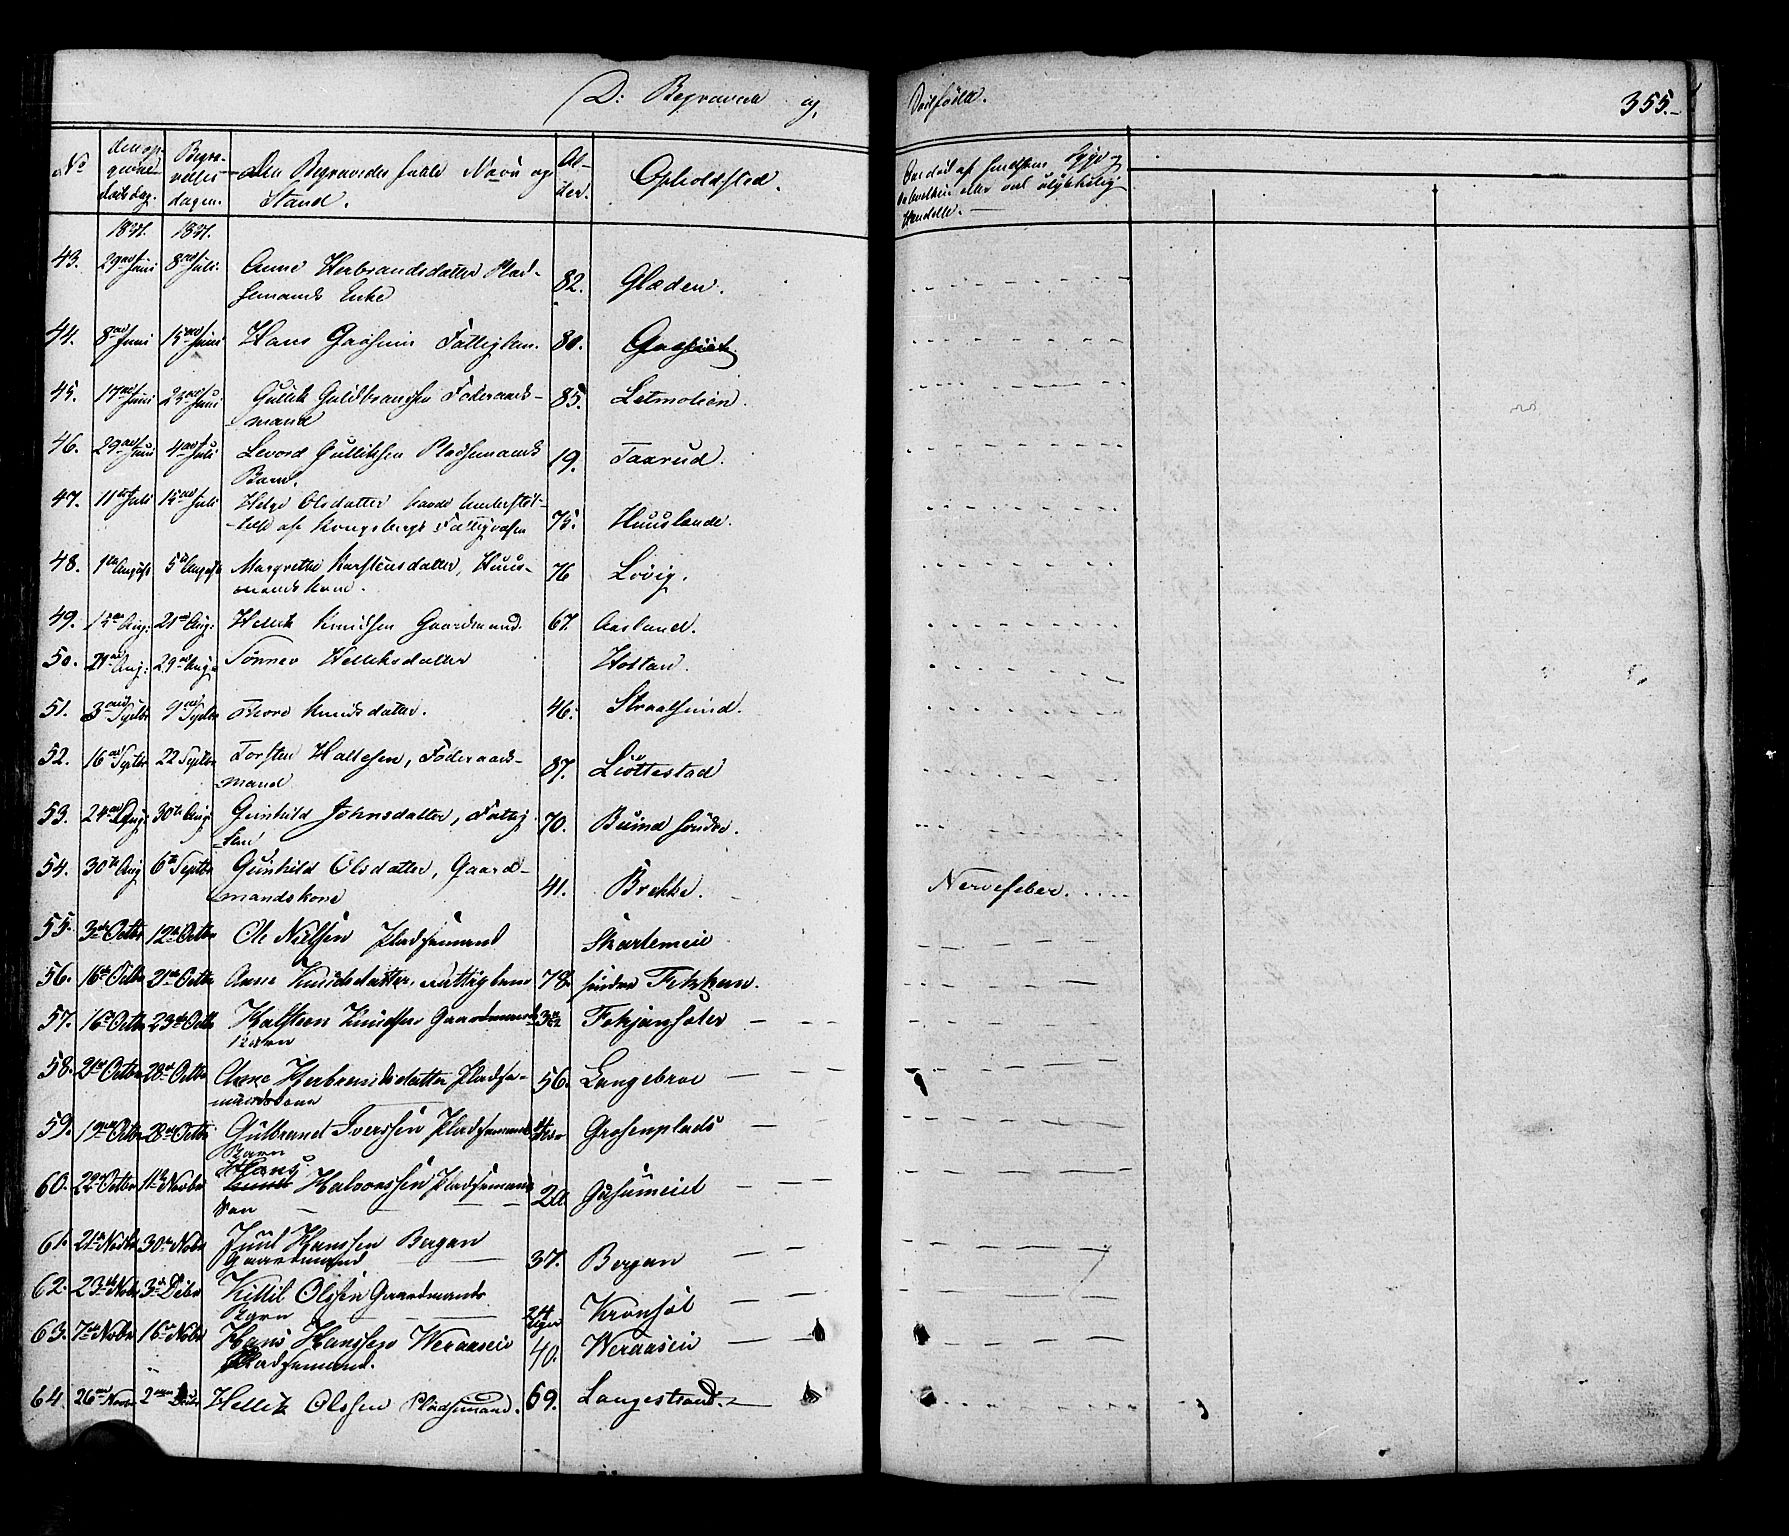 D: Begravede og Dødfødte. 355.
No
den op-
givne
dødsdag.
Begra-
velses
dagen.
Den Begravedes fulde Navn og
Stand.
Al-
der.
Opholdsted.
Om død af smitsom Syge
eller ved ulykkelig
Hændelse.
1837. 1837.
43. 29de Juni 8de Juli. Anne Herbrandsdatter Plad-
semands Enke 82. Glæden.
44. 8de Juni 15de Juni Hans Fattiglem. 80.
45. 17de Juni 23de Juni Gullik Guldbrandsen Føderaads-
mand 85. Letmolien.
46. 29de Juni 4de Juli Levord Gulliksen Pladsemands
Barn. 19. Taarud.
47. 11te Juli 15de Juli Helge Olsdatter havde Understøt-
telse af Kongsbergs Fattigvæsen 75. Huuslende.
48. 1ste August 5te August Margrethe Karstensdatter, Huus-
mandskone. 76 Lövig.
49. 15de Aug: 21de Aug: Hellek Knudsen Gaardmand. 67. Aasland.
50. 21de Aug: 29de Aug: Tønnev Helleksdatter Hostan.
51. 3die Septbr 9de Septbr Thore Knudsdatter. 46. Straalsund.
52. 16de Septbr 22 Septbr Torsten Hallesen, Föderaads-
mand 87. Liöttestad
53. 24de Aug: 30te Aug: Gunhild Johnsdatter, Fattig-
lem 70. Buind söndre.
54. 30te Aug 6te Septbr Gunhild Olsdatter, Gaard-
mandskone 41. Brekke. Nervefeber.
55. 3de Octbr 12te Octbr Ole Nielsen Pladsemand Skartemeie
56. 16de Octbr 21de Octbr Anne Knudsdatter, Fattiglem 78. søndre Fekkan.
57. 16de Octbr 23de Octbr Halsteen Knudsen Gaardmands
Barn Fekjansæter
58. 21de Octbr 28de Octbr Anne Herbrandsdatter Pladse-
mandskone 56. Langebroe
59. 19de Octbr 28de Octbr Gulbrand Iversen Pladsemands
Barn Grosenplads
60. 22de Octbr 11te Novbr Hans
Halvorsen Pladsemands
Søn 20 Gusumeiet
61. 21de Novbr 30te Novbr Juul Hanssen Bergan
Gaardmand 37. Bergan
62. 23de Novbr 3de Debr Kittil Olsen Gaardmands
Barn 24
Uger Kronsöl
63. 7de Novbr 16de Novbr Hans Hanssen Weraaseie
Pladsemand. 40. Weraaseie
64. 26de Novbr 2den Debr Hellek Olssen Pladsemand. 69. Langestrand.